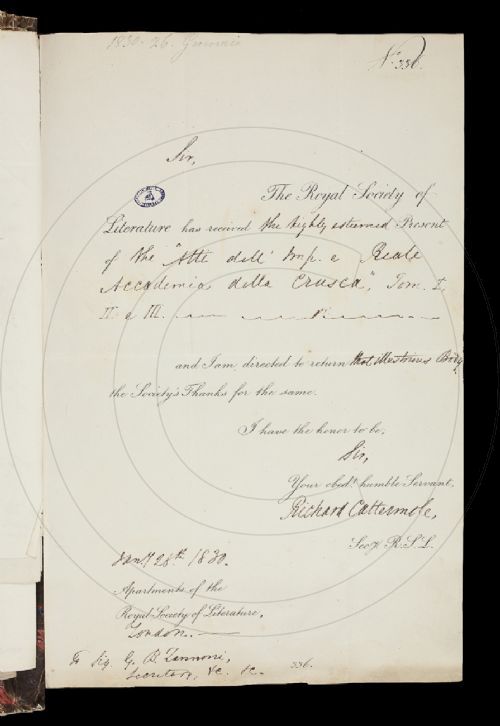 1830. 26. Gennaio
N. 336.
Sir,
The Royal Society of
Literature has received the highly esteemed Present
of the "Atti dell' Imp. e Reale
Accademia della Crusca", Tom. I.
II. & III.
and I am directed to return that illustrious Body
the Society's Thanks for the same.
I have the honor to be,
Sir,
Your obedt. humble Servant,
Richard Cattermole,
Secy. R.S.L.
Jany. 28th 1830.
Apartments of the
Royal Society of Literature,
London.
To Sig. G. B. Zannoni,
Secretary, &c. &c.
336.